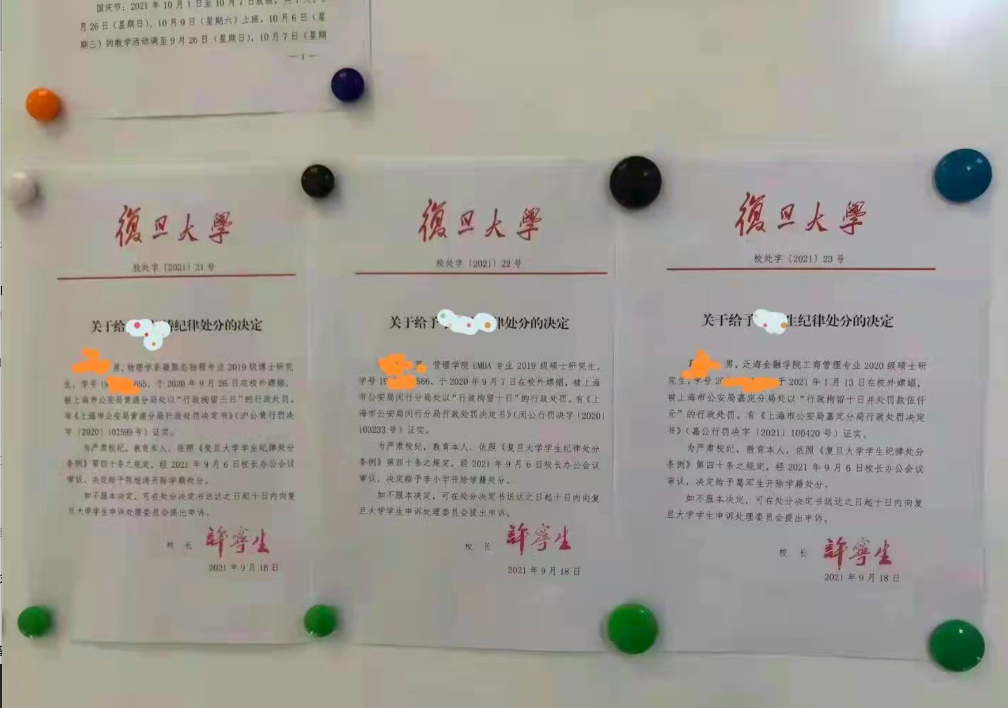 国庆节：2021年10月1日至10月7日放假，共7天。
月26日（星期日）、10月9日（星期六）上班。10月6日（星
期三）的教学活动调至9月26日（星期日），10月7日（星期
—1—
復旦大學
校处字〔2021〕21号
关于给 纪律处分的决定
男，物理学系凝聚态物理专业2019级博士研究
生，学号 055，于2020年9月26日在校外嫖娼，
被上海市公安局黄浦分局处以“行政拘留三日”的行政处罚，
有《上海市公安局黄浦分局行政处罚决定书》（沪公黄行罚决
字〔2020〕102599号）证实。
为严肃校纪，教育本人，依照《复旦大学学生纪律处分
条例》第四十条之规定，经2021年9月6日校长办公会议
审议，决定给予 开除学籍处分。
如不服本决定，可在处分决定书送达之日起十日内向复
旦大学学生申诉处理委员会提出申诉。
校 长 許寧生
2021年9月18日
復旦大學
校处字〔2021〕22号
关于给予 律处分的决定
男，管理学院EMBA专业2019级硕士研究生，
学号 566，于2020年9月7日在校外嫖娼，被上海
市公安局闵行分局处以“行政拘留十日”的行政处罚，有《上
海市公安局闵行分局行政处罚决定书》（闵公行罚决字〔2020〕
103233号）证实。
为严肃校纪，教育本人，依照《复旦大学学生纪律处分
条例》第四十条之规定，经2021年9月6日校长办公会议
审议，决定给予 开除学籍处分。
如不服本决定，可在处分决定书送达之日起十日内向复
旦大学学生申诉处理委员会提出申诉。
校 长 許寧生
2021年9月18日
復旦大學
校处字〔2021〕23号
关于给予 生纪律处分的决定
男，泛海金融学院工商管理专业2020级硕士研
究生，学号20 于2021年1月13日在校外嫖娼，
被上海市公安局嘉定分局处以“行政拘留十日并处罚款伍仟
元”的行政处罚，有《上海市公安局嘉定分局行政处罚决定
书》（嘉公行罚决字〔2021〕100420号）证实。
为严肃校纪，教育本人，依照《复旦大学学生纪律处分
条例》第四十条之规定，经2021年9月6日校长办公会议
审议，决定给予 开除学籍处分。
如不服本决定，可在处分决定书送达之日起十日内向复
旦大学学生申诉处理委员会提出申诉。
校 长 許寧生
2021年9月18日